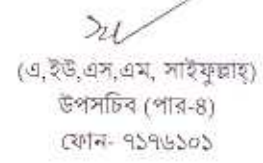 (এ,ইউ,এস,এম, সাইফুল্লাহ)
উপসচিব (পার-৪)
ফোন- ৭১৭৬১০১